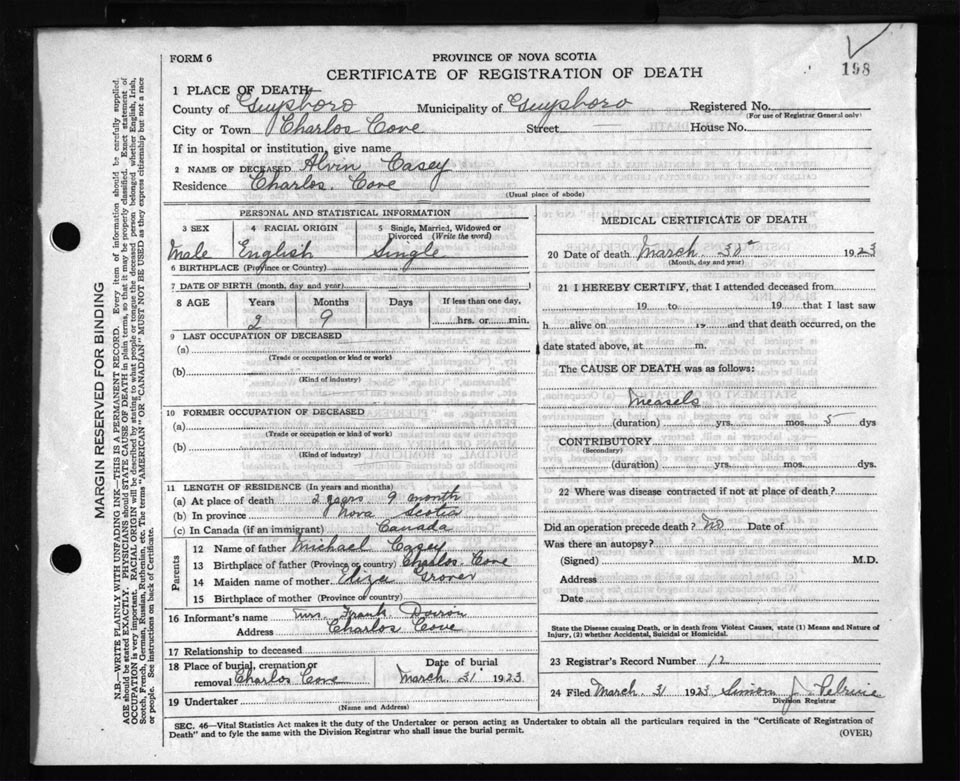 198
FORM 6
PROVINCE OF NOVA SCOTIA
CERTIFICATE OF REGISTRATION OF DEATH
1 PLACE OF DEATH
County of Guysboro Municipality of Guysboro Registered No.
(For use of Registrar General only)
City or Town Charlos Cove Street House No.
If in hospital or institution, give name
2 NAME OF DECEASED Alvin Casey
Residence Charlos Cove
(Usual place of abode)
PERSONAL AND STATISTICAL INFORMATION
3 SEX 4 RACIAL ORIGIN 5 Single, Married, Widowed or Divorced (Write the word)
Male English Single
6 BIRTHPLACE (Province or Country)
7 DATE OF BIRTH (month, day, and year)
8 AGE Years Months Days If less than one day,
2 9 hrs. or min.
9 LAST OCCUPATION OF DECEASED
(a)
(Trade or occupation or kind of work)
(b)
(Kind of industry)
10 FORMER OCCUPATION OF DECEASED
(a)
(Trade or occupation or kind of work)
(b)
(Kind of industry)
11 LENGTH OF RESIDENCE (In years and months)
(a) At place of death 2 years 9 month
(b) In province Nova Scotia
(c) In Canada (if an immigrant) Canada
Parents
12 Name of father Michael Casey
13 Birthplace of father (Province or country) Charlos Cove
14 Maiden name of mother Eliza Grover
15 Birthplace of mother (Province or country)
16 Informant's name Mrs Frank Doiron
Address Charlos Cove
17 Relationship to deceased
18 Place of burial, cremation or removal Charlos Cove Date of burial March 31 1923
19 Undertaker
(Name and Address)
MEDICAL CERTIFICATE OF DEATH
20 Date of death March 30 1923
(Month, day and year)
21 I HEREBY CERTIFY, that I attended deceased from
19 to 19 that I last saw
h alive on 19 and that death occurred, on the
date stated above, at m.
The CAUSE OF DEATH was as follows:
Measels
(duration) yrs. mos. 5 dys
CONTRIBUTORY
(Secondary)
(duration) yrs. mos. dys.
22 Where was disease contracted if not at place of death?
Did an operation precede death? No Date of
Was there an autopsy?
(Signed) M.D.
Address
Date
State the Disease causing Death, or in death from Violent Causes, state (1) Means and Nature of
Injury, (2) whether Accidental, Suicidal or Homicidal.
23 Registrar's Record Number 12
24 Filed March 31 1923 Simon J. Pelrine
Division Registrar
SEC. 46—Vital Statistics Act makes it the duty of the Undertaker or person acting as Undertaker to obtain all the particulars required in the "Certificate of Registration of
Death" and to fyle the same with the Division Registrar who shall issue the burial permit.
(OVER)
MARGIN RESERVED FOR BINDING
N.B.—WRITE PLAINLY WITH UNFADING INK—THIS IS A PERMANENT RECORD. Every item of information should be carefully supplied.
AGE should be stated EXACTLY. PHYSICIANS should STATE CAUSE OF DEATH in plain terms, so that it may be properly classified. Exact statement of
OCCUPATION is very important. RACIAL ORIGIN will be described by stating to what people or tongue the deceased person belonged whether English, Irish,
Scotch, French, German, Russian, Ruthenian, etc. The terms "AMERICAN" OR "CANADIAN" MUST NOT BE USED as they express citizenship but not a race
or people. See instructions on back of Certificate.